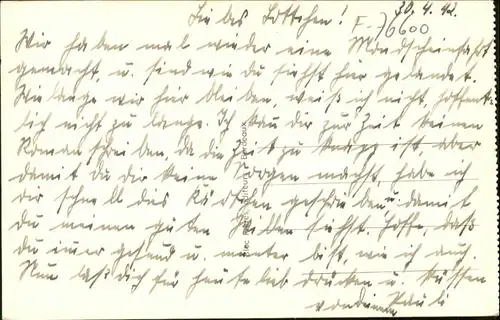 30. 4. 42.
F-76600
Liebes Lottchen!
Wir haben mal wieder eine Mondscheinfahrt
gemacht, u. sind wie du siehst hier gelandet.
Wie lange wir hier bleiben, weiß ich nicht, hoffent-
lich nicht zu lange. Ich kan dir zur Zeit keinen
Roman schreiben, da die Zeit zu knapp ist aber
damit du dir keine Sorgen machst, habe ich
dir schnell das Kärtchen geschrieben u. damit
du meinen guten Willen siehst. Hoffe, daß
du imer gesund u. munter bist, wie ich auch.
Nun laß dich für heute lieb drücken u. küssen
von deinem Pauli